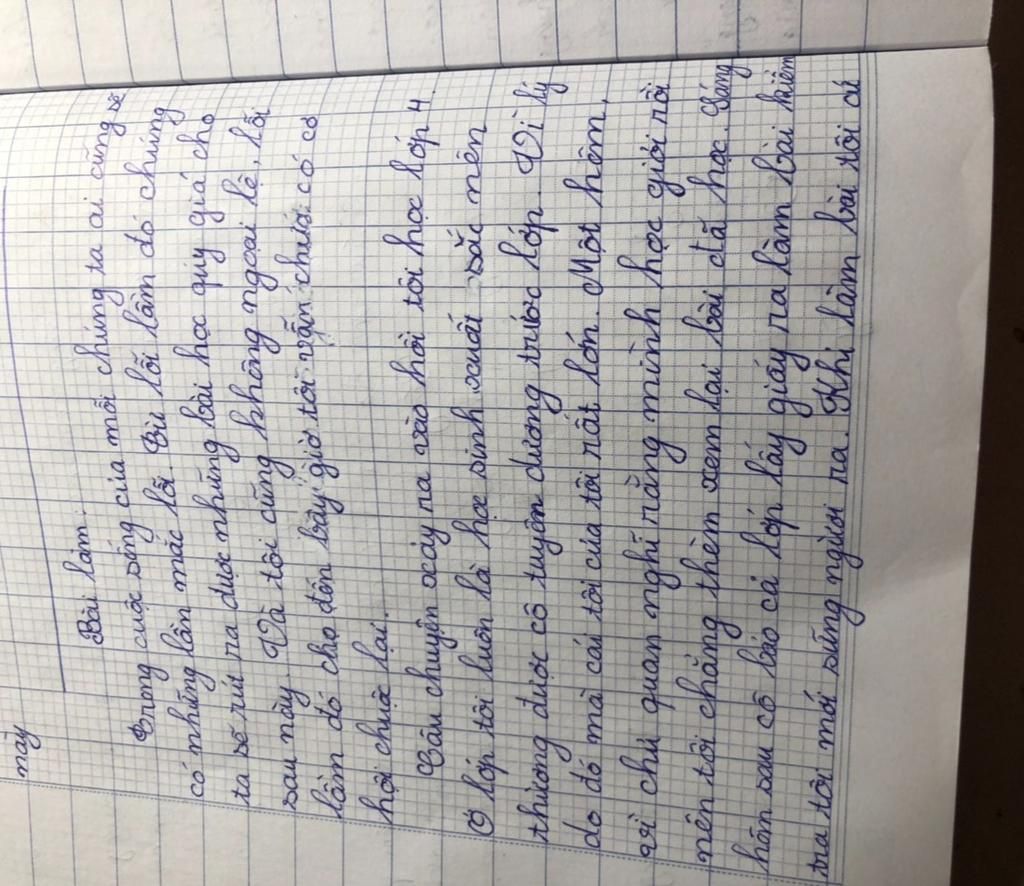 mấy
Bài làm:
Trong cuộc sống của mỗi chúng ta ai cũng sẽ
có những lần mắc lỗi. Từ lỗi lầm đó chúng
ta sẽ rút ra được những bài học quý giá cho
sau này. Và tôi cũng không ngoại lệ, lỗi
lầm đó cho đến bây giờ tôi vẫn chưa có cơ
hội chuộc lại.
Câu chuyện xảy ra vào hồi tôi học lớp 4.
Ở lớp tôi luôn là học sinh xuất sắc nên
thường được cô tuyên dương trước lớp. Vì lý
do đó mà cái tôi của tôi rất lớn. Một hôm,
vì chủ quan nghĩ rằng mình học giỏi rồi
nên tôi chẳng thèm xem lại bài đã học. Sáng
hôm sau cô báo cả lớp lấy giấy ra làm bài kiểm
tra tôi mới sững người ra. Khi làm bài tôi cứ